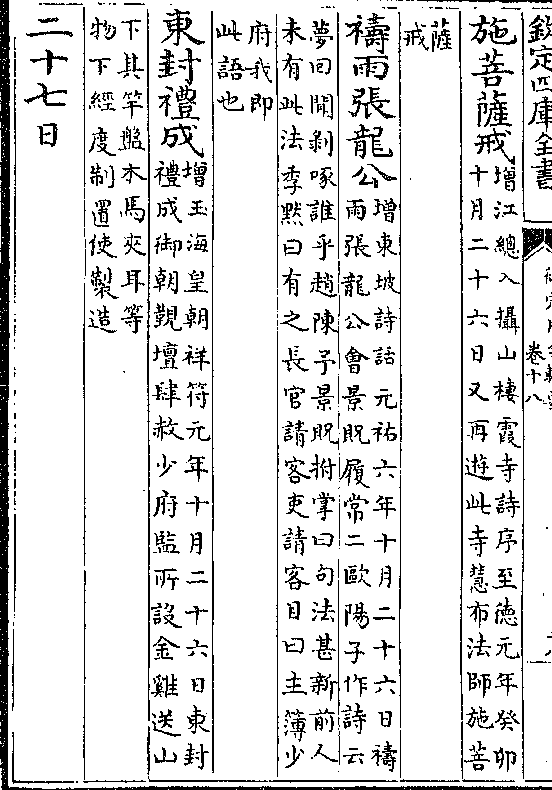 欽定四庫全書
卷十八
施菩薩戒 增江總入攝山棲霞寺詩序至德元年癸卯
十月二十六日又再遊此寺慧布法師施菩
薩
戒
禱雨張龍公 增東坡詩話元祐六年十月二十六日禱
雨張龍公會景貺履常二歐陽子作詩云
夢回聞剝啄誰乎趙陳予景貺拊掌曰句法甚新前人
未有此法季黙曰有之長官請客吏請客目曰主簿少
府我即
此語也
東封禮成 增玉海皇朝祥符元年十月二十六日東封
禮成御朝覲壇肆赦少府監所設金雞送山
下其竿盤木馬夾耳等
物下經度制置使製造
二十七日